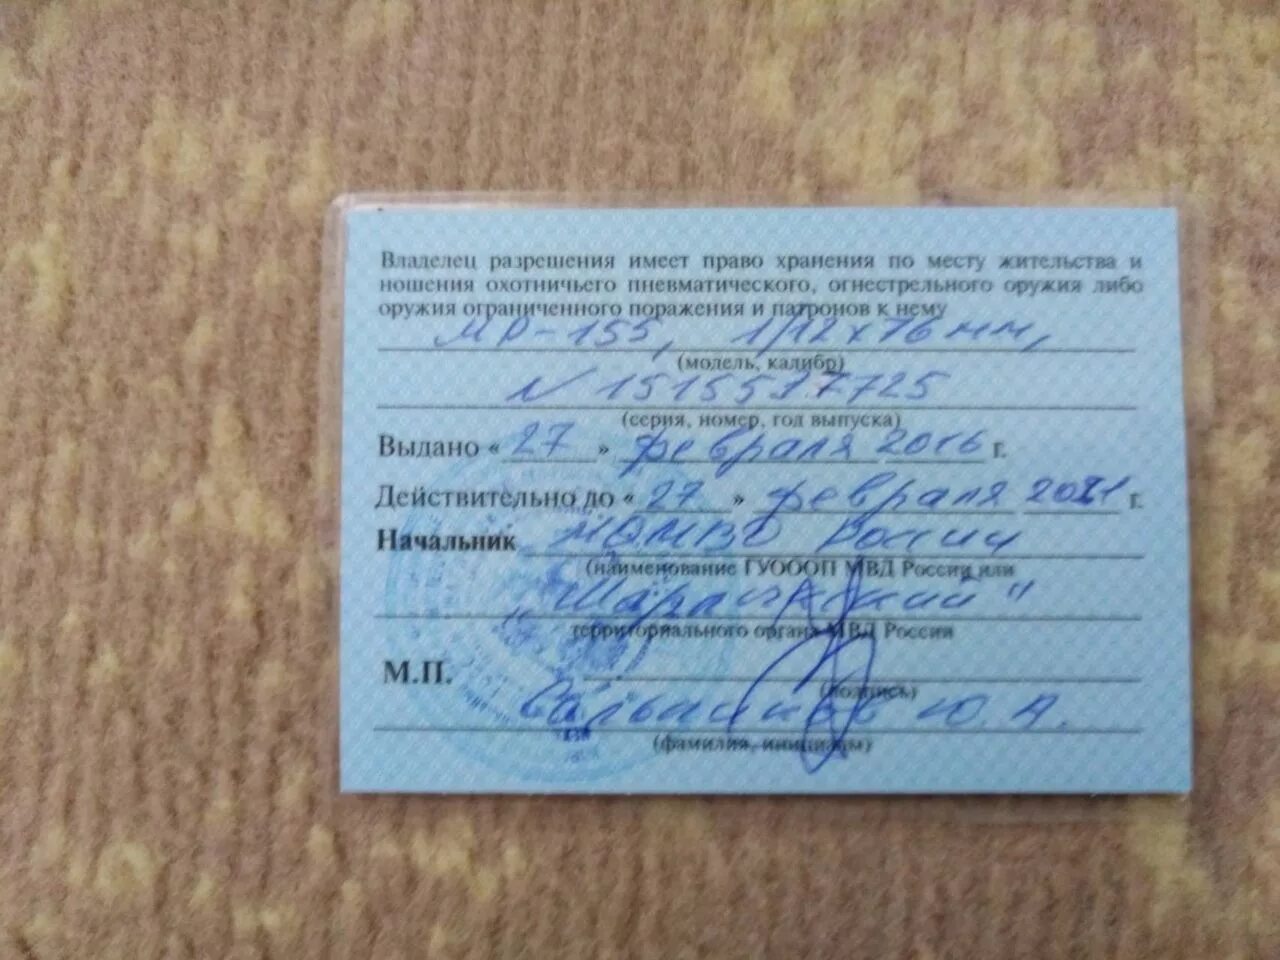 Владелец разрешения имеет право хранения по месту жительства и
ношения охотничьего пневматического, огнестрельного оружия либо
оружия ограниченного поражения и патронов к нему
МР-155, 1/12х76 мм,
(модель, калибр)
N 1515537725
(серия, номер, год выпуска)
Выдано « 27 » февраля 2016 г.
Действительно до « 27 » февраля 2021 г.
Начальник МОМВД России
(наименование ГУОООП МВД России или
территориального органа МВД России
М.П.
(подпись)
Сальников Ю. А.
(фамилия, инициалы)